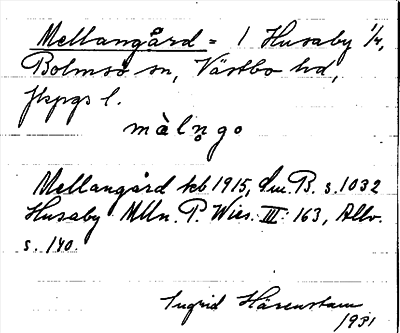 Mellangård = 1 Husaby 1/4,
Bolmsö sn, Västbo hd,
Jkpgs l.
màln̥go
Mellangård kb 1915, dm. B. s. 1032
Husaby Mlln. P. Wies. III: 163, Allv.
s. 140.
Ingrid Härenstam
1931